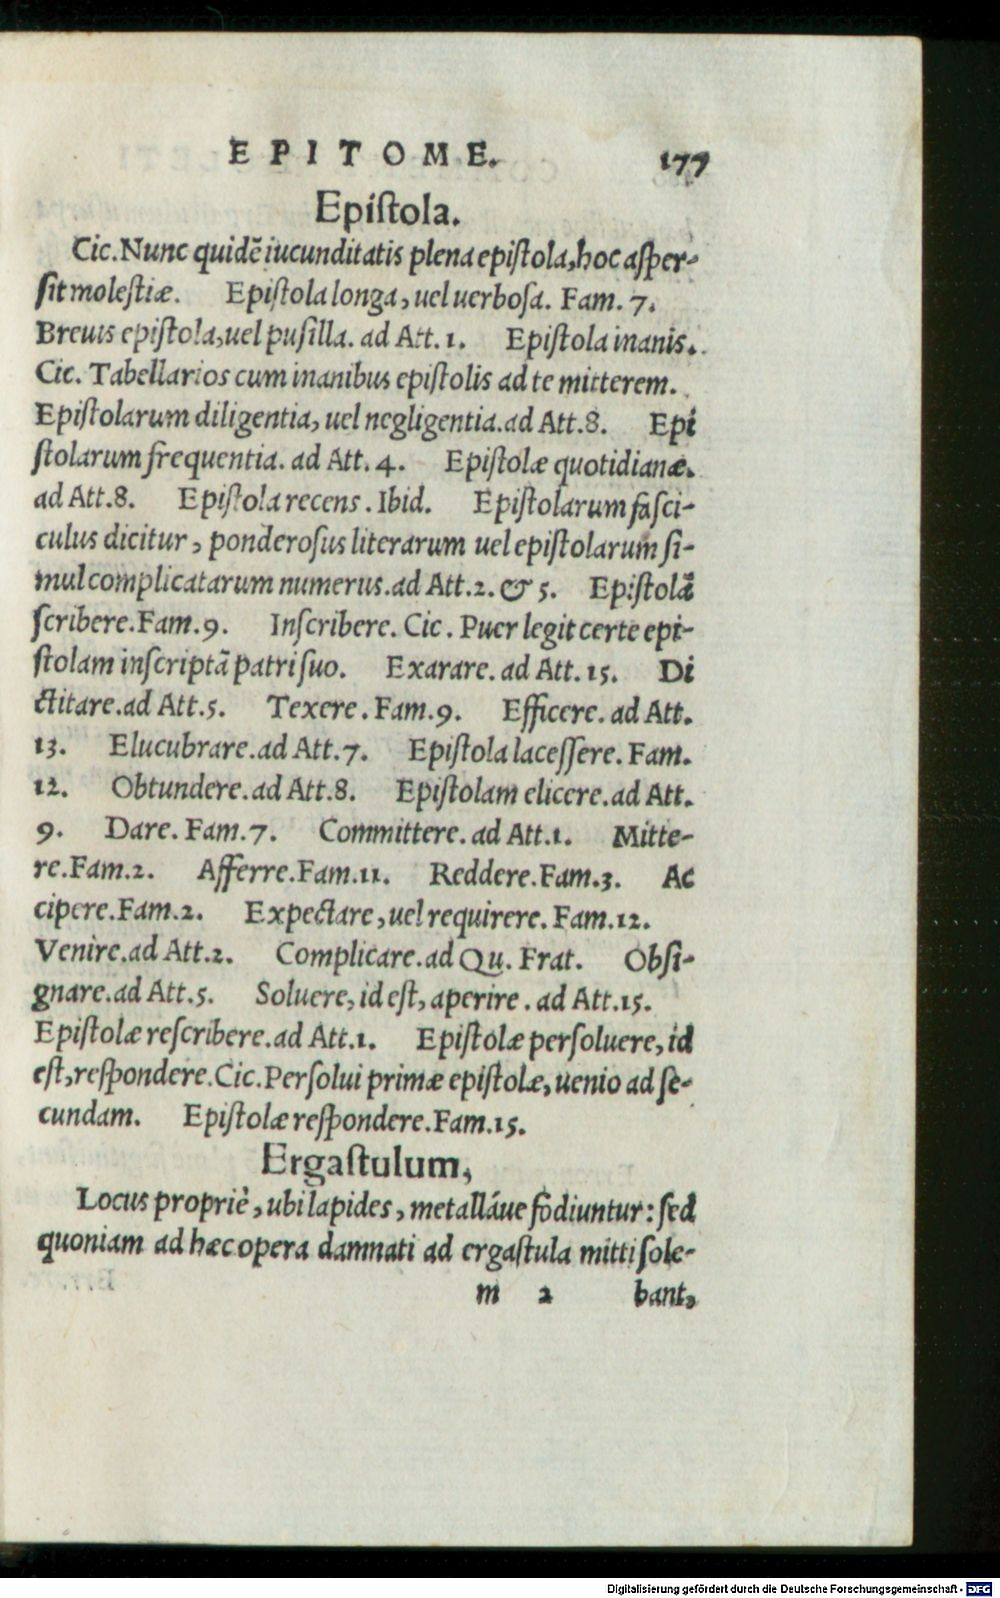 EPITOME. 177
Epistola.
Cic. Nunc quidē iucunditatis plena epistola, hoc asper-
sit molestiæ. Epistola longa, uel uerbosa. Fam. 7.
Breuis epistola, uel pusilla. ad Att. 1. Epistola inanis.
Cic. Tabellarios cum inanibus epistolis ad te mitterem.
Epistolarum diligentia, uel negligentia. ad Att. 8. Epi
stolarum frequentia. ad Att. 4. Epistolæ quotidianæ.
ad Att. 8. Epistola recens. Ibid. Epistolarum fasci-
culus dicitur, ponderosus literarum uel epistolarum si-
mul complicatarum numerus. ad Att. 2. & 5. Epistolā
scribere. Fam. 9. Inscribere. Cic. Puer legit certe epi-
stolam inscriptā patri suo. Exarare. ad Att. 15. Di
ctitare. ad Att. 5. Texere. Fam. 9. Efficere. ad Att.
13. Elucubrare. ad Att. 7. Epistola lacessere. Fam.
12. Obtundere. ad Att. 8. Epistolam elicere. ad Att.
9. Dare. Fam. 7. Committere. ad Att. 1. Mitte-
re. Fam. 2. Afferre. Fam. 11. Reddere. Fam. 3. Ac
cipere. Fam. 2. Expectare, uel requirere. Fam. 12.
Venire. ad Att. 2. Complicare. ad Qu. Frat. Obsi-
gnare. ad Att. 5. Soluere, id est, aperire. ad Att. 15.
Epistolæ rescribere. ad Att. 1. Epistolæ persoluere, id
est, respondere. Cic. Persolui primæ epistolæ, uenio ad se-
cundam. Epistolæ respondere. Fam. 15.
Ergastulum,
Locus propriè, ubi lapides, metalláue fodiuntur: sed
quoniam ad hæc opera damnati ad ergastula mitti sole-
m 2 bant,
Digitalisierung gefördert durch die Deutsche Forschungsgemeinschaft - DFG